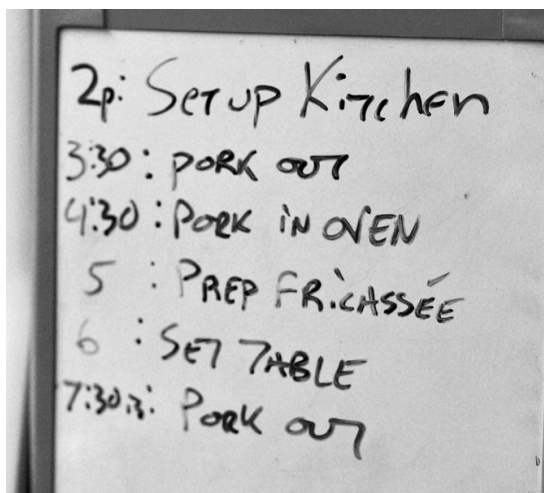 2p: Setup Kitchen
3:30: PORK OUT
4:30: PORK IN OVEN
5 : PREP FRICASSÉE
6 : SET TABLE
7:30: PORK OUT